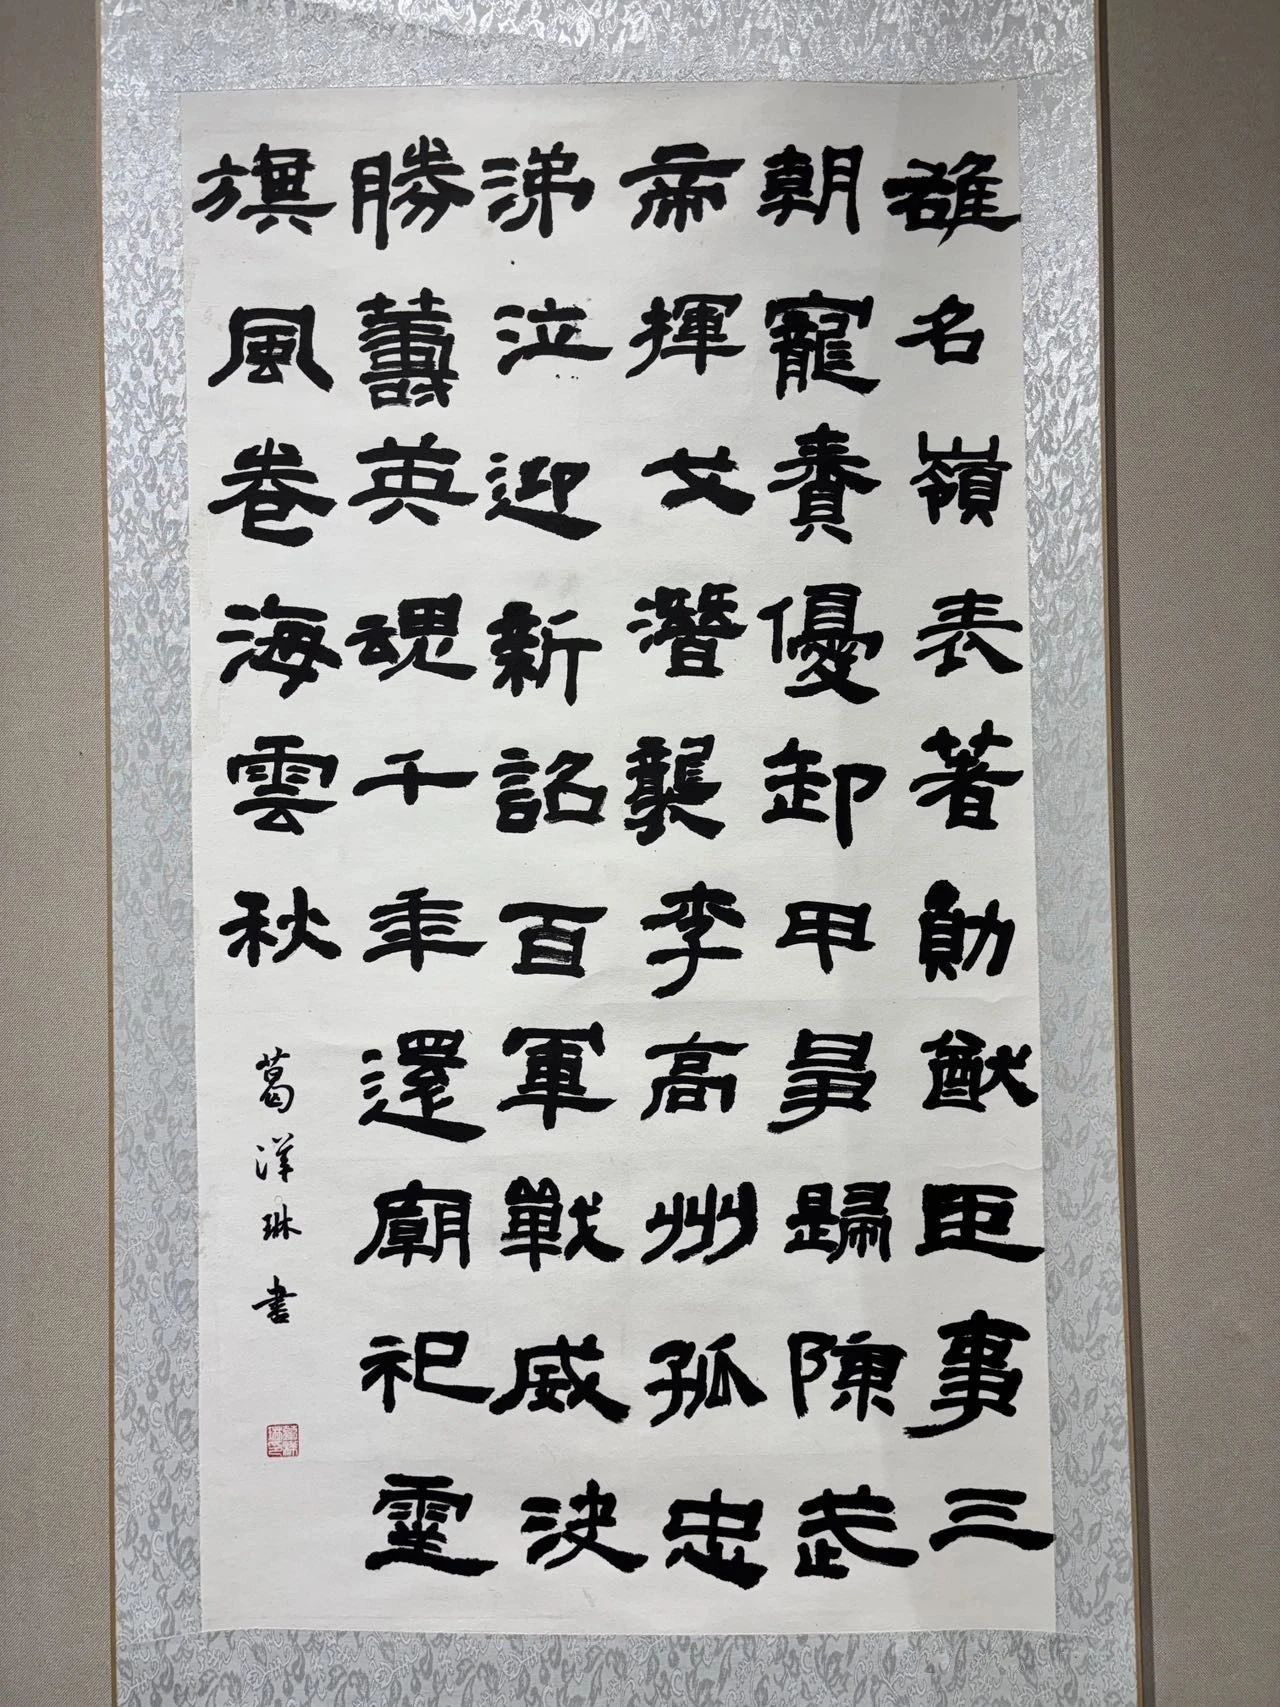 雄名嶺表著勛猷臣事三
朝寵賚優卸甲事歸陳武
帝揮戈潛襲李高州孤忠
涕泣迎新詔百軍戰威決
勝籌英魂千年還廟祀靈
旗風卷海雲秋
葛洋琳書